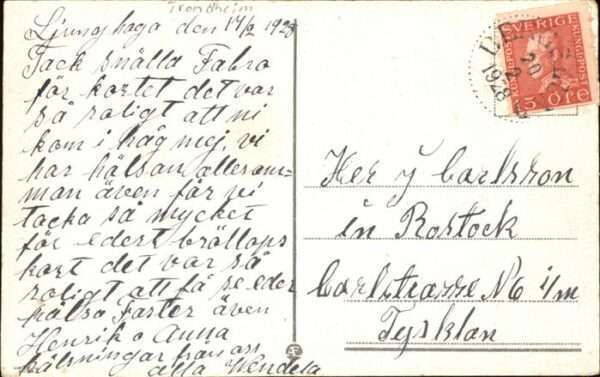 Trondheim
Ljunghaga den 14/2 1928
Tack snälla Fabro
för kortet det var
så roligt att ni
kom i håg mej, vi
har hälsan allesam=
man även får vi
tacka så mycket
för edert bröllops
kort det var så
roligt att få se eder
hälsa Faster även
Henrik o Anna
hälsningar från oss
alla Wendela
SVERIGE
15 ÖRE
20
2
1928
Her J Carlsson
in Rostock
Carlstrasse No 6 i/m
Tysklan